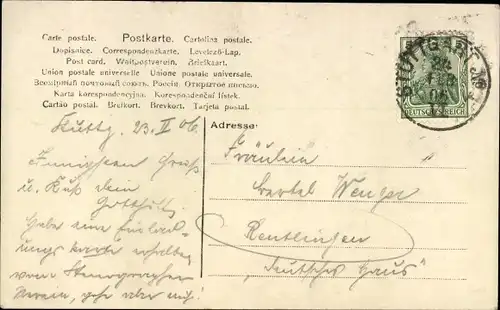 Carte postale. Postkarte. Cartolina postale.
Dopisnice. Correspondenzkarte. Levelező-Lap.
Post card. Weltpostverein. Briefkaart.
Union postale universelle. Unione postale universale.
Всемірный почтовый союзъ. Россія. Открытое письмо.
Karta korespondencyjna. Korespondenční lístek.
Cartão postal. Brefkort. Brevkort. Tarjeta postal.
STUTTGART
FEB
06
DEUTSCHES REICH
Stuttg. 23. II 06.
Adresse:
Innigsten Gruß
u. Kuß Dein
Gotthilf.
Habe eine Einlad-
ungskarte erhalten
vom Stenographen
Verein, gehe aber nicht!
Fräulein
Wenger
Reutlingen
"Deutsches Haus"